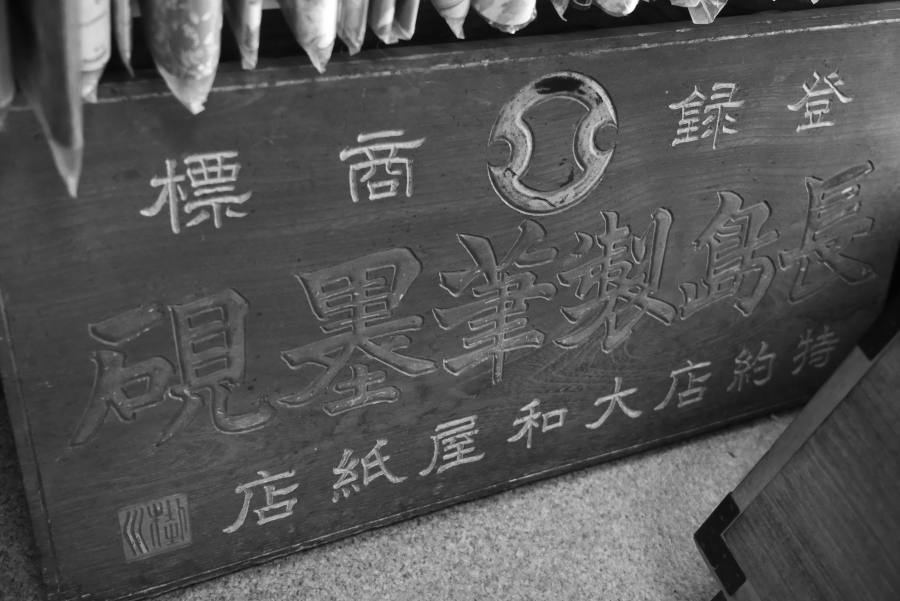 登録商標
長島製筆墨硯
特約店大和屋紙店